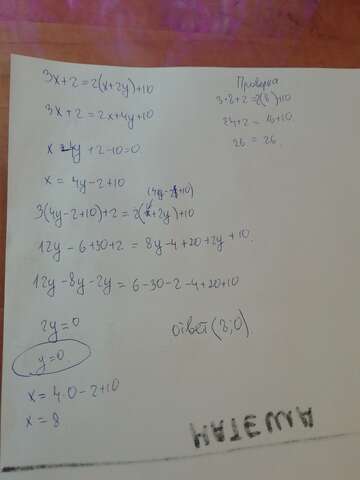 3x+2=2(x+2y)+10
3x+2=2x+4y+10
x-4y+2-10=0.
x = 4y-2+10
(4y-2+10)
3(4y-2+10)+2=2(x+2y)+10
12y-6+30+2=8y-4+20+2y+10.
12y-8y-2y=6-30-2-4+20+10
2y=0
y=0.
x=4.0-2+10
x=8
Проверка
3·8+2=2(8)+10
24+2=16+10.
26=26.
ответ (8;0)
МАТЕША